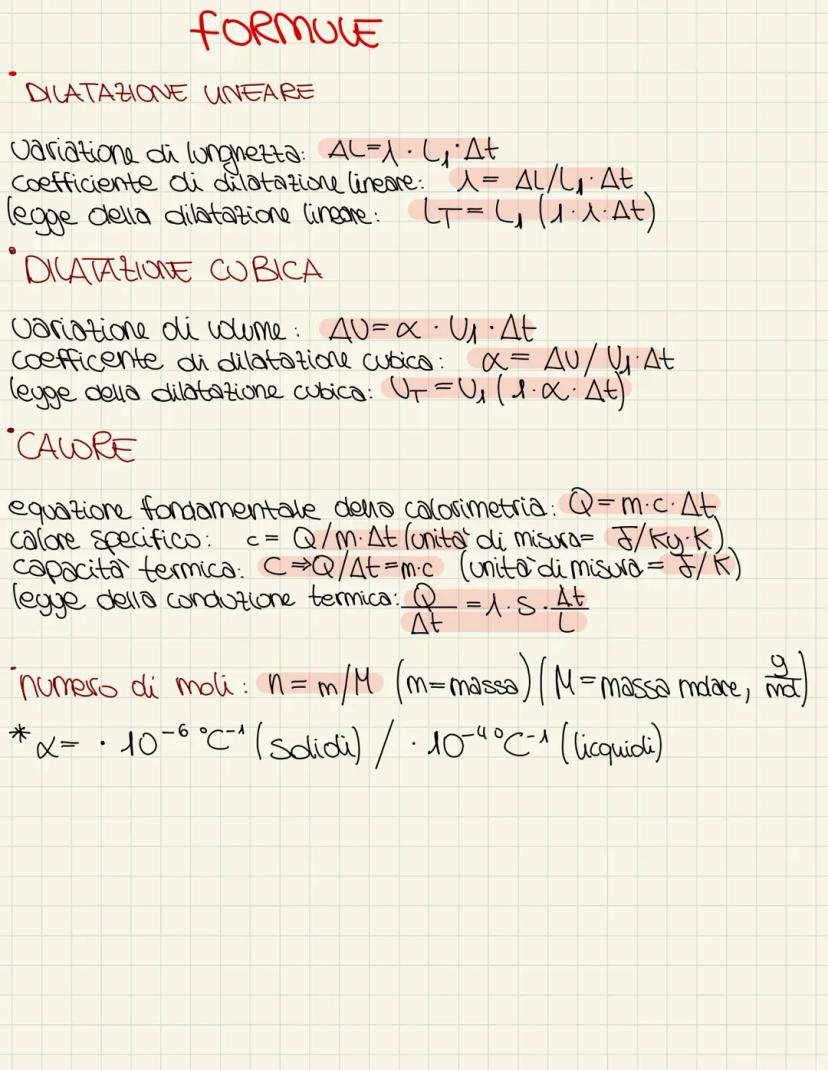 FORMULE
• DILATAZIONE LINEARE
variazione di lunghezza: ΔL=λ · L₁ · Δt
coefficiente di dilatazione lineare: λ = ΔL/L₁ · Δt
legge della dilatazione lineare: L_T = L₁ (1 · λ · Δt)
• DILATAZIONE CUBICA
variazione di volume: ΔV=α · V₁ · Δt
coefficente di dilatazione cubica: α = ΔV/V₁ · Δt
legge della dilatazione cubica: V_T = V₁ (1 · α · Δt)
• CALORE
equazione fondamentale della calorimetria: Q=m · c · Δt
calore specifico: c = Q/m · Δt (unità di misura= J/Kg · K)
capacità termica: C ⇒ Q/Δt = m · c (unità di misura = J/K)
legge della conduzione termica: Q/Δt = λ · S · Δt/L
• numero di moli: n = m/M (m=massa) (M=massa molare, g/mol)
* α = · 10⁻⁶ °C⁻¹ (solidi) / · 10⁻⁴ °C⁻¹ (licquidi)